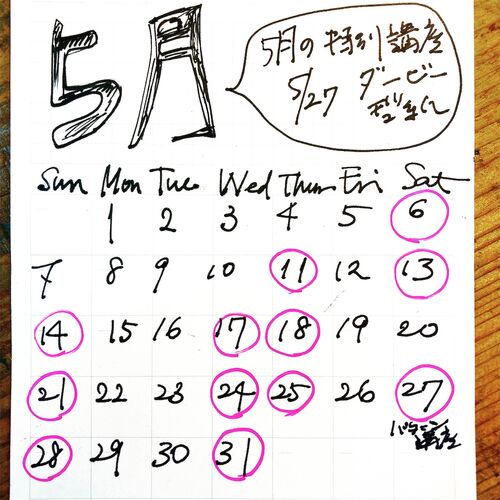 5月
5月の特別講座
5/27 ダービー
Sun Mon Tue Wed Thu Fri Sat
1 2 3 4 5 6
7 8 9 10 11 12 13
14 15 16 17 18 19 20
21 22 23 24 25 26 27
講座
28 29 30 31